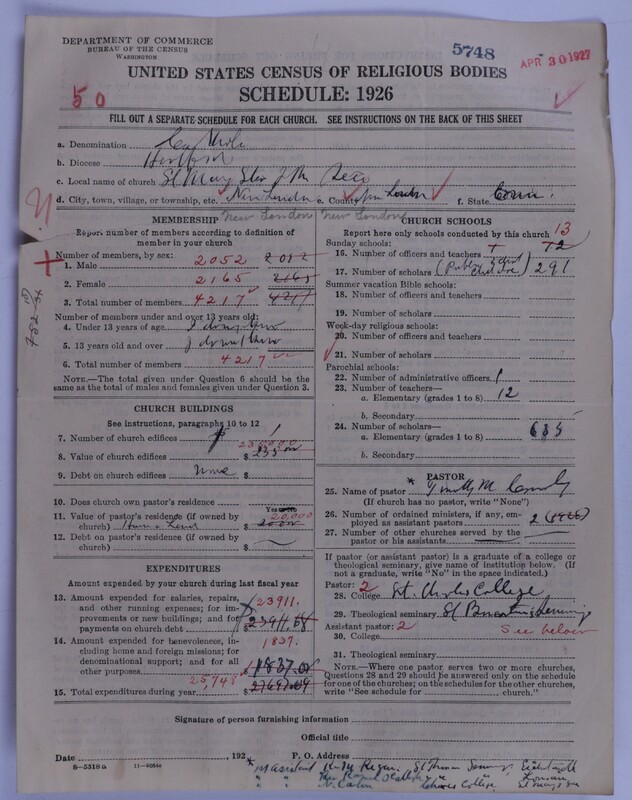 DEPARTMENT OF COMMERCE
BUREAU OF THE CENSUS
WASHINGTON
5748
APR 30 1927
UNITED STATES CENSUS OF RELIGIOUS BODIES
SCHEDULE: 1926
50
FILL OUT A SEPARATE SCHEDULE FOR EACH CHURCH. SEE INSTRUCTIONS ON THE BACK OF THIS SHEET
a. Denomination Catholic
b. Diocese Hartford
c. Local name of church St Mary Star of the Sea
d. City, town, village, or township, etc. New London e. County New London f. State Conn.
New London New London
MEMBERSHIP
Report number of members according to definition of member in your church
Number of members, by sex:
1. Male 2052
2. Female 2165 2165
3. Total number of members 4217 4217
Number of members under and over 13 years old:
4. Under 13 years of age
5. 13 years old and over
6. Total number of members 4217
NOTE.—The total given under Question 6 should be the same as the total of males and females given under Question 3.
CHURCH BUILDINGS
See instructions, paragraphs 10 to 12
7. Number of church edifices 1
8. Value of church edifices $
9. Debt on church edifices None $
10. Does church own pastor's residence
Yes or No
11. Value of pastor's residence (if owned by church) $ 20,000
12. Debt on pastor's residence (if owned by church) $
EXPENDITURES
Amount expended by your church during last fiscal year
13. Amount expended for salaries, repairs, and other running expenses; for improvements or new buildings; and for payments on church debt 23911.
14. Amount expended for benevolences, including home and foreign missions; for denominational support; and for all other purposes 1837.
15. Total expenditures during year 25,748
CHURCH SCHOOLS
Report here only schools conducted by this church
13
Sunday schools:
16. Number of officers and teachers 12
17. Number of scholars 291
Summer vacation Bible schools:
18. Number of officers and teachers
19. Number of scholars
Week-day religious schools:
20. Number of officers and teachers
21. Number of scholars
Parochial schools:
22. Number of administrative officers 1
23. Number of teachers—
a. Elementary (grades 1 to 8) 12
b. Secondary
24. Number of scholars—
a. Elementary (grades 1 to 8)
b. Secondary
PASTOR
25. Name of pastor Timothy M
(If church has no pastor, write "None")
26. Number of ordained ministers, if any, employed as assistant pastors 2
27. Number of other churches served by the pastor or his assistants
If pastor (or assistant pastor) is a graduate of a college or theological seminary, give name of institution below. (If not a graduate, write "No" in the space indicated.)
Pastor: 2
28. College St. Charles College
29. Theological seminary St
Assistant pastor: 2 See below
30. College
31. Theological seminary
NOTE.—Where one pastor serves two or more churches, Questions 28 and 29 should be answered only on the schedule for one of the churches; on the schedules for the other churches, write "See schedule for church."
Signature of person furnishing information
Official title
Date , 192 P. O. Address
8-5318a 11-9054